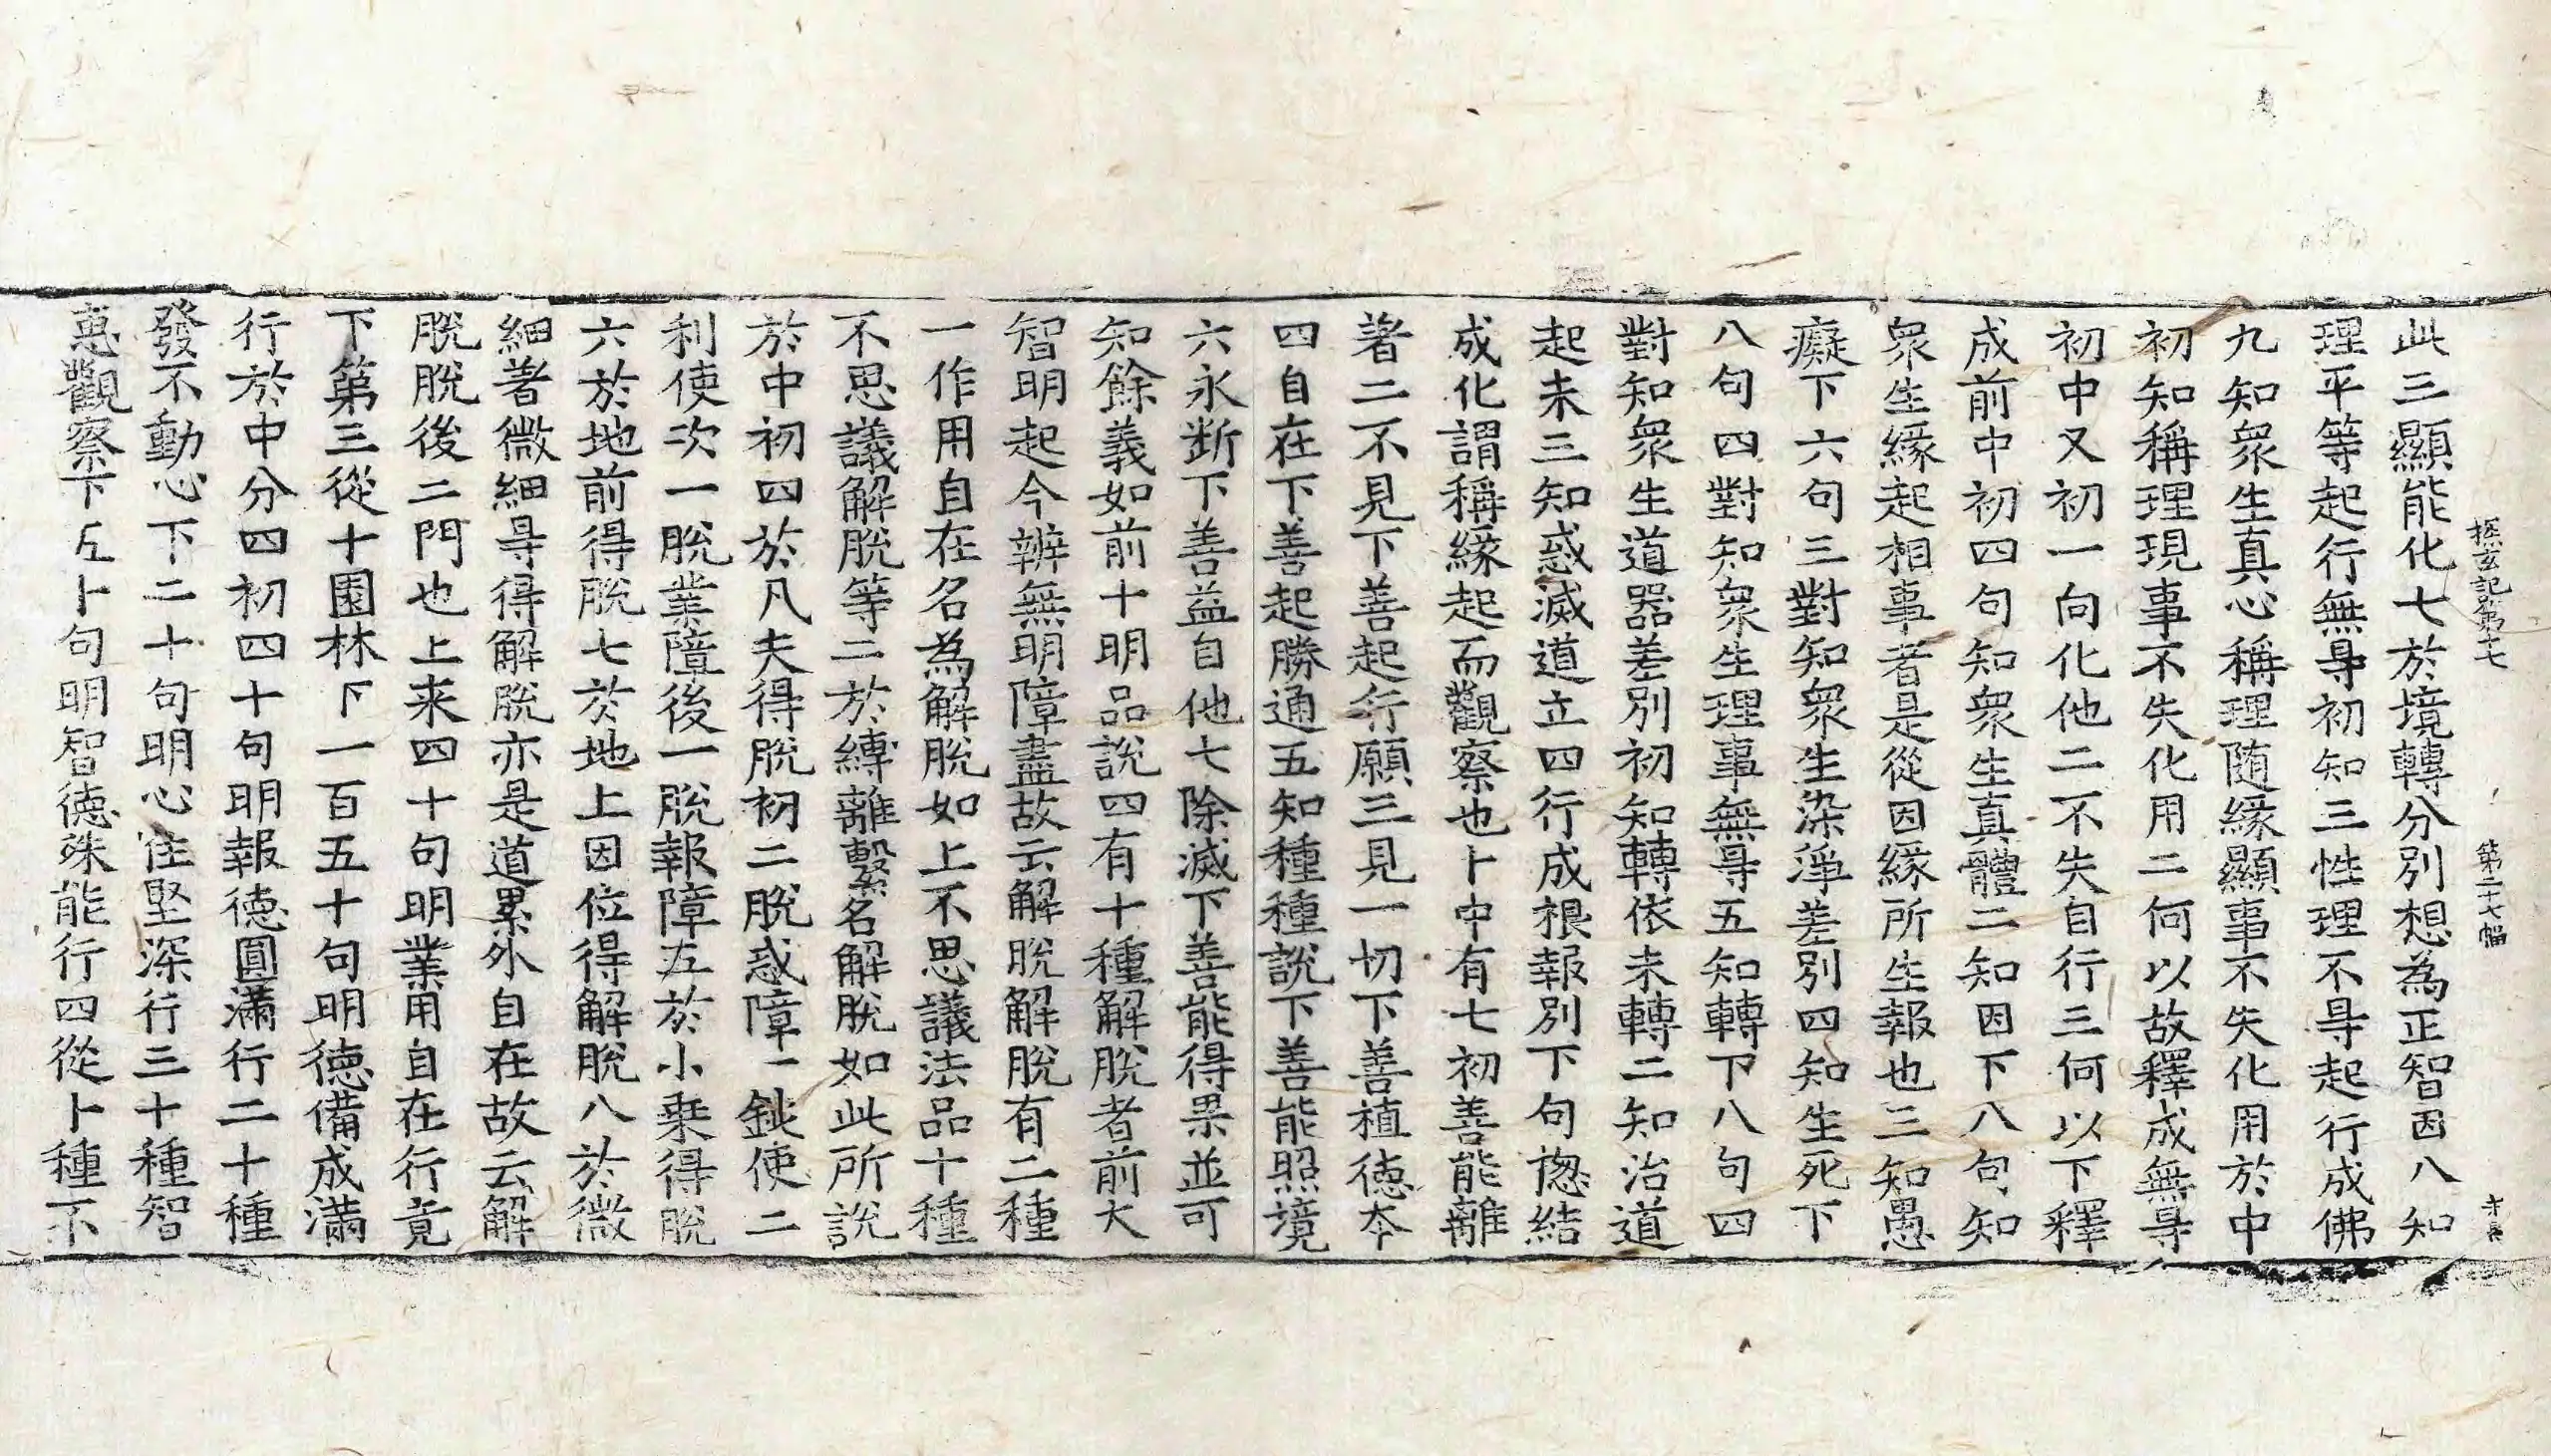 探玄記第十七 第二十七幅
此三顯能化七於境轉分別想為正智因八知
理平等起行無㝵初知三性理不㝵起行成佛
九知衆生真心稱理随緣顯事不失化用於中
初知稱理現事不失化用二何以故釋成無㝵
初中又初一向化他二不失自行三何以下釋
成前中初四句知衆生真體二知因下八句知
衆生緣起相事者是從因緣所生報也三知愚
癡下六句三對知衆生染淨差別四知生死下
八句四對知衆生理事無㝵五知轉下八句四
對知衆生道器差別初知轉依未轉二知治道
起未三知惑滅道立四行成根報別下句揔結
成化謂稱緣起而觀察也十中有七初善能離
著二不見下善起行願三見一切下善植德夲
四自在下善起勝通五知種種說下善能照境
六永断下善益自他七除滅下善能得果並可
知餘義如前十明品說四有十種解脫者前大
智明起今辨無明障盡故云解脫解脫有二種
一作用自在名為解脫如上不思議法品十種
不思議解脫等二於縛離繫名解脫如此所說
於中初四於凡夫得脫初二脫惑障一鈍使二
利使次一脫業障後一脫報障五於小乗得脫
六於地前得脫七於地上因位得解脫八於微
細著微細㝵得解脫亦是道累外自在故云解
脫脫後二門也上来四十句明業用自在行竟
下第三從十園林下一百五十句明德備成滿
行於中分四初四十句明報德圓滿行二十種
發不動心下二十句明心住堅深行三十種智
惠觀察下五十句明智德殊能行四從十種不